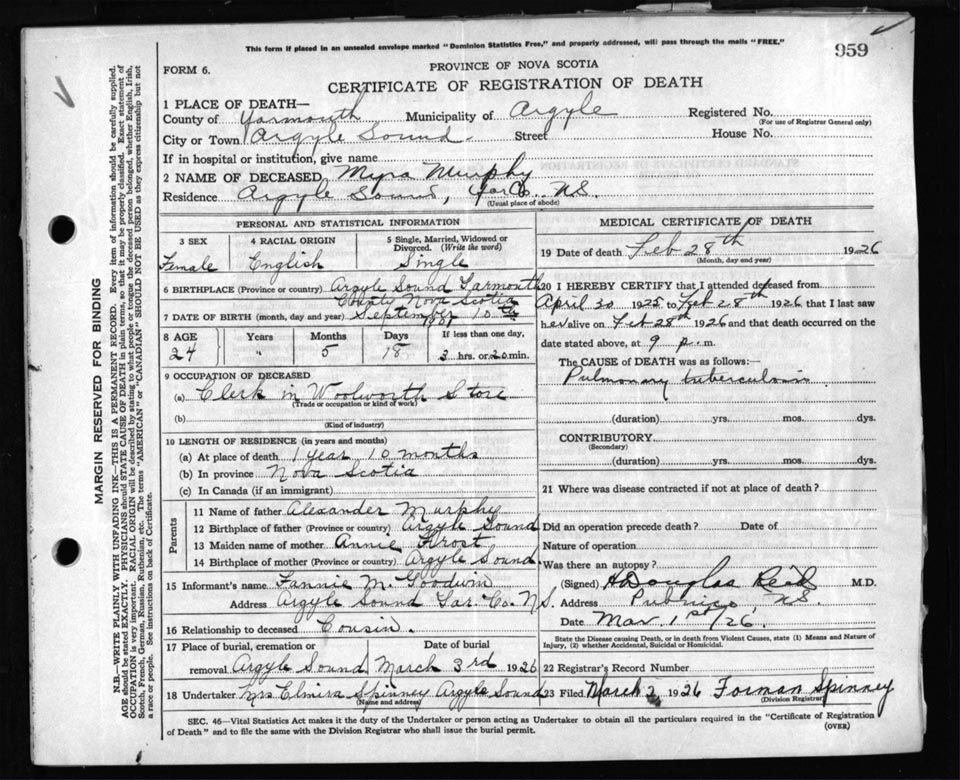 This form if placed in an unsealed envelope marked "Dominion Statistics Free," and properly addressed, will pass through the mails "FREE."
959
FORM 6.
PROVINCE OF NOVA SCOTIA
CERTIFICATE OF REGISTRATION OF DEATH
1 PLACE OF DEATH—
County of Yarmouth Municipality of Argyle Registered No.
(For use of Registrar General only)
City or Town Argyle Sound. Street House No.
If in hospital or institution, give name
2 NAME OF DECEASED Myra Murphy
Residence Argyle Sound, Yar Co. N.S.
(Usual place of abode)
PERSONAL AND STATISTICAL INFORMATION
3 SEX 4 RACIAL ORIGIN 5 Single, Married, Widowed or Divorced. (Write the word)
Female English Single
6 BIRTHPLACE (Province or country) Argyle Sound Yarmouth
County Nova Scotia
7 DATE OF BIRTH (month, day and year) September 10
1901
8 AGE Years Months Days If less than one day,
24 " 5 18 3 hrs. or 20 min.
9 OCCUPATION OF DECEASED
(a) Clerk in Woolworth Store
(Trade or occupation or kind of work)
(b)
(Kind of industry)
10 LENGTH OF RESIDENCE (in years and months)
(a) At place of death 1 year 10 months
(b) In province Nova Scotia
(c) In Canada (if an immigrant)
Parents
11 Name of father Alexander Murphy
12 Birthplace of father (Province or country) Argyle Sound
13 Maiden name of mother Annie Frost
14 Birthplace of mother (Province or country) Argyle Sound.
15 Informant's name Fannie M. Goodwin
Address Argyle Sound Yar. Co. N.S.
16 Relationship to deceased Cousin.
17 Place of burial, cremation or removal Date of burial
Argyle Sound March 3rd 1926
18 Undertaker Mrs Elmira Spinney Argyle Sound
(Name and address)
MEDICAL CERTIFICATE OF DEATH
19 Date of death Feb 28th 1926
(Month, day and year)
20 I HEREBY CERTIFY that I attended deceased from
April 30 1925 to Feb 28th 1926 that I last saw
her alive on Feb 28th 1926 and that death occurred on the
date stated above, at 9 p.m.
The CAUSE of DEATH was as follows:—
Pulmonary tuberculosis
(duration) yrs. mos. dys.
CONTRIBUTORY
(Secondary)
(duration) yrs. mos. dys.
21 Where was disease contracted if not at place of death?
Did an operation precede death? Date of
Nature of operation
Was there an autopsy?
(Signed) Douglas M.D.
Address Pubnico, N.S.
Date Mar. 1st/26.
State the Disease causing Death, or in death from Violent Causes, state (1) Means and Nature of Injury, (2) whether Accidental, Suicidal or Homicidal.
22 Registrar's Record Number
23 Filed March 2, 1926 Forman Spinney
(Division Registrar)
SEC. 46—Vital Statistics Act makes it the duty of the Undertaker or person acting as Undertaker to obtain all the particulars required in the "Certificate of Registration
of Death" and to file the same with the Division Registrar who shall issue the burial permit.
(OVER)
MARGIN RESERVED FOR BINDING
N.B.—WRITE PLAINLY, WITH UNFADING INK—THIS IS A PERMANENT RECORD. Every item of information should be carefully supplied.
AGE should be stated EXACTLY. PHYSICIANS should STATE CAUSE OF DEATH in plain terms, so that it may be properly classified. Exact statement of
OCCUPATION is very important. RACIAL ORIGIN will be described by stating to what people or tongue the deceased person belonged, whether English, Irish,
Scotch, French, German, Russian, Ruthenian, etc. The terms "AMERICAN" or "CANADIAN" SHOULD NOT BE USED as they express citizenship but not
a race or people. See instructions on back of Certificate.